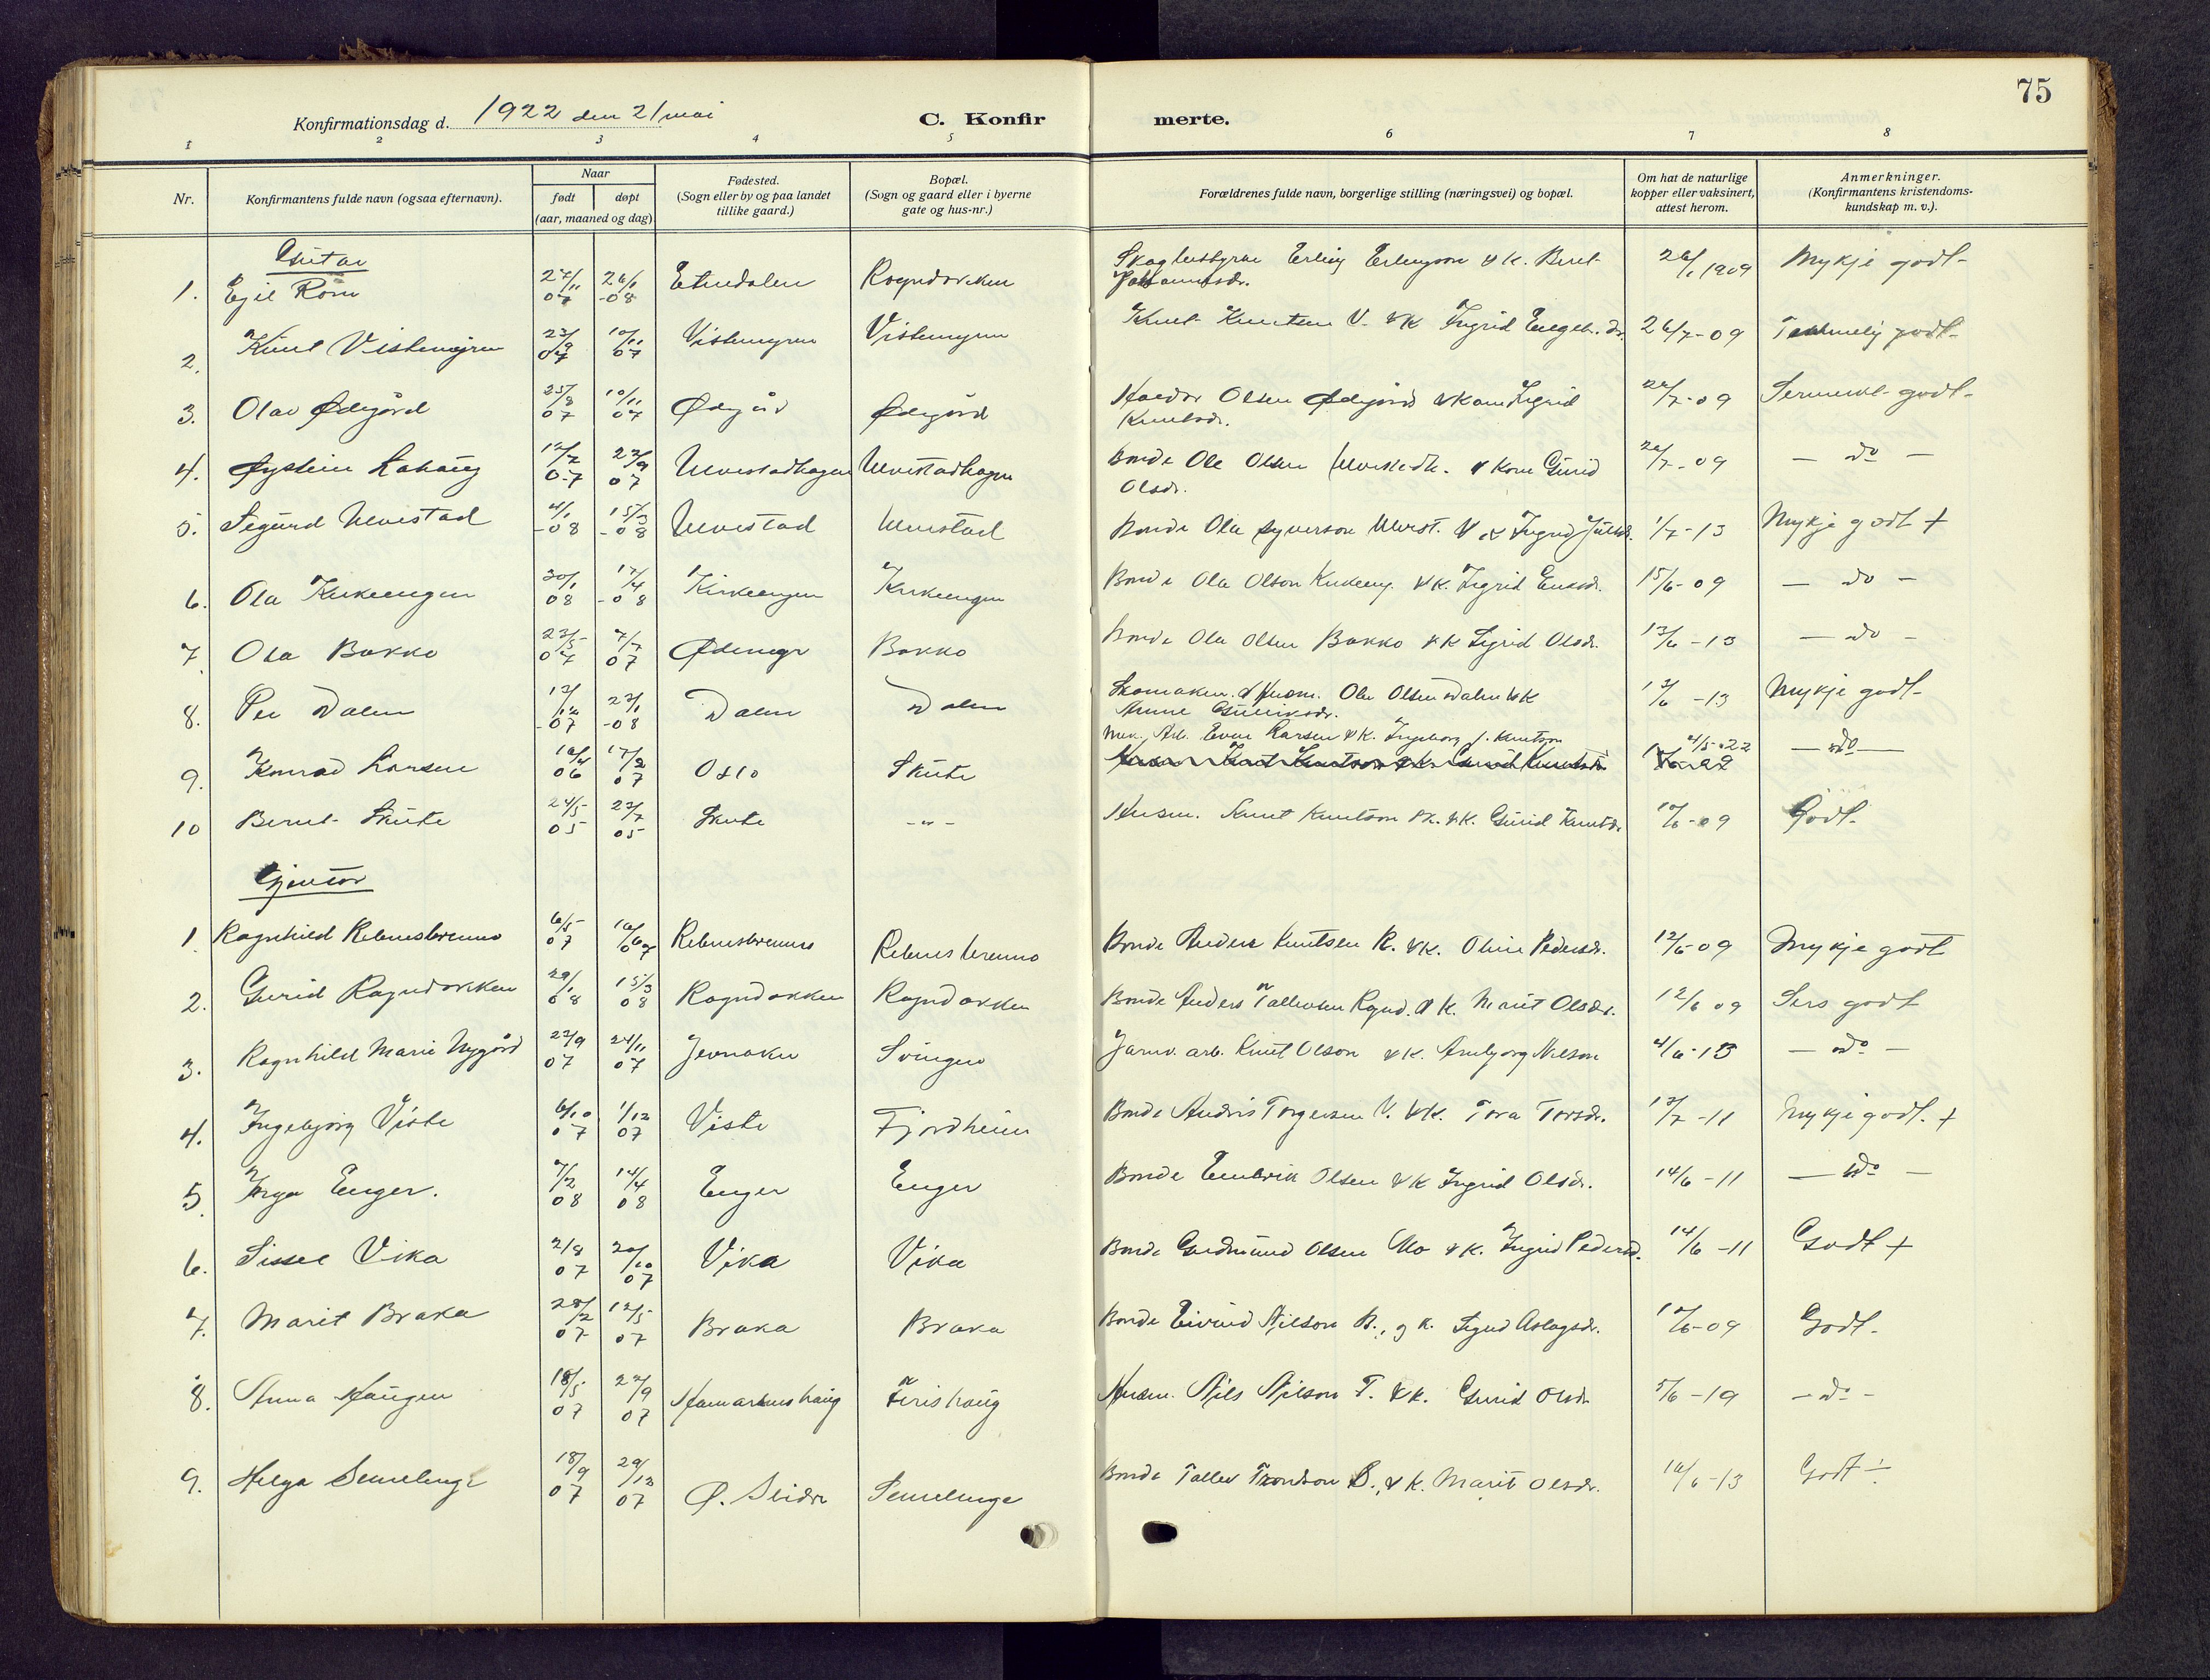 75
Konfirmationsdag d. 1922 den 21 mai
C. Konfirmerte.
1 2 3 4 5 6 7 8
Nr.
Konfirmantens fulde navn (ogsaa efternavn).
Naar
født
døpt
(aar, maaned og dag)
Fødested.
(Sogn eller by og paa landet
tillike gaard.)
Bopæl.
(Sogn og gaard eller i byerne
gate og hus-nr.)
Forældrenes fulde navn, borgerlige stilling (næringsvei) og bopæl.
Om hat de naturlige
kopper eller vaksinert,
attest herom.
Anmerkninger.
(Konfirmantens kristendoms-
kundskap m. v.).
Gutar
1. Egil Röm 27/11 07 26/1 -08 Etnedalen Rogndokken Erling Erlingson & K. Berit Johannesdr. 26/1 1909 Mykje godt
2. Knut Vistemyrn 23/9 07 10/11 07 Vistemyrn Vistemyrn Knut Knutsen V. & K Ingrid Engebr. dr. 26/7-09 godt
3. Olav Ødegård 25/8 07 10/11 07 Ødegård Ødegård Haldor Olsen Ødegård & Kone Sigrid Knutsdr. 26/7-09 godt
4. Øystein Lohaug 12/7 07 22/9 07 Ulvestadhagen Ulvestadhagen Bonde Ole Olsen Ulvestadh. & Kone Gurid Olsdr. 26/7-09 — do —
5. Sigurd Ulvestad 4/1 -08 15/3 -08 Ulvestad Ulvestad Bonde Ola Syverson Ulvest. & K Ingrid 1/7-13 Mykje godt +
6. Ola Kirkeengen 30/1 08 17/4 -08 Kirkeengen Kirkeengen Bonde Ola Olson Kirkeeng. & K. Ingrid 15/6-09 — do —
7. Ola Bakko 23/5 07 7/7 07 Ødemyr Bakko Bonde Ola Olsen Bakko & K Sigrid Olsdr. 13/6-13 — do —
8. Per Dalen 13/12 -07 23/1 -08 Dalen Dalen Skomaker & Husm. Ole Olsen Dalen & K Anne Gulliksdr. 13/6-13 Mykje godt
9. Konrad Larsen 06 17/2 07 Oslo Skute Mek. Arb. Even Larsen & K. Ingeborg f. Knutson 4/5-22 — do —
10 Berit Skute 24/5 05 23/7 05 Skute - " - Husm. Knut Knutson Sk. & K. Gurid Knutsdr. 10/6-09 Godt
Gjentor
1. Ragnhild Rebnesbrenno 6/5 07 07 Rebnesbrenno Rebnesbrenno Bonde Anders Knutsen R. & K. Oline Pedersdr. 12/6-09 Mykje godt
2. Gurid Rogndokken 29/1 08 15/3 08 Rogndokken Rogndokken Bonde Anders Tollevsen Rognd. & K. Marit Olsdr. 12/6 09 Sers godt
3. Ragnhild Marie Nygård 22/9 07 24/11 07 Jevnaker Svingen Jarnv. arb. Knut Olson & K. Ambjørg Nilson 4/6-13 — do —
4. Ingebjørg Viste 6/10 07 1/12 07 Viste Fjordheim Bonde Andris Torgersen V. & K. Tora Torsdr. 13/7-11 Mykje godt. +
5. Inga Enger. 7/2 08 14/4 08 Enger Enger Bonde Embrik Olsen & K Ingrid Olsdr. 14/6-11 — do —
6. Sissel Vika 2/8 07 20/10 07 Vika Vika Bonde Gudmund Olsen Mo & K. Ingrid Pedersd. 14/6-11 Godt +
7. Marit Braka 28/2 07 12/5 07 Braka Braka Bonde Eivind Nilson B., og K. Sigrid Aslagsdr. 12/6-09 Godt.
8. Anna Haugen 18/5 07 22/9 07 Hamarsnshaug Ferishaug Husm. Nils Nilson F. & K. Gurid Olsdr. 5/6-19 — do —
9. Helga Semelenge 18/9 07 29/12 07 Ø. Slidre Semelenge Bonde Tollev Trondson S., & K. Marit Olsdr. 16/6-13 Godt ÷